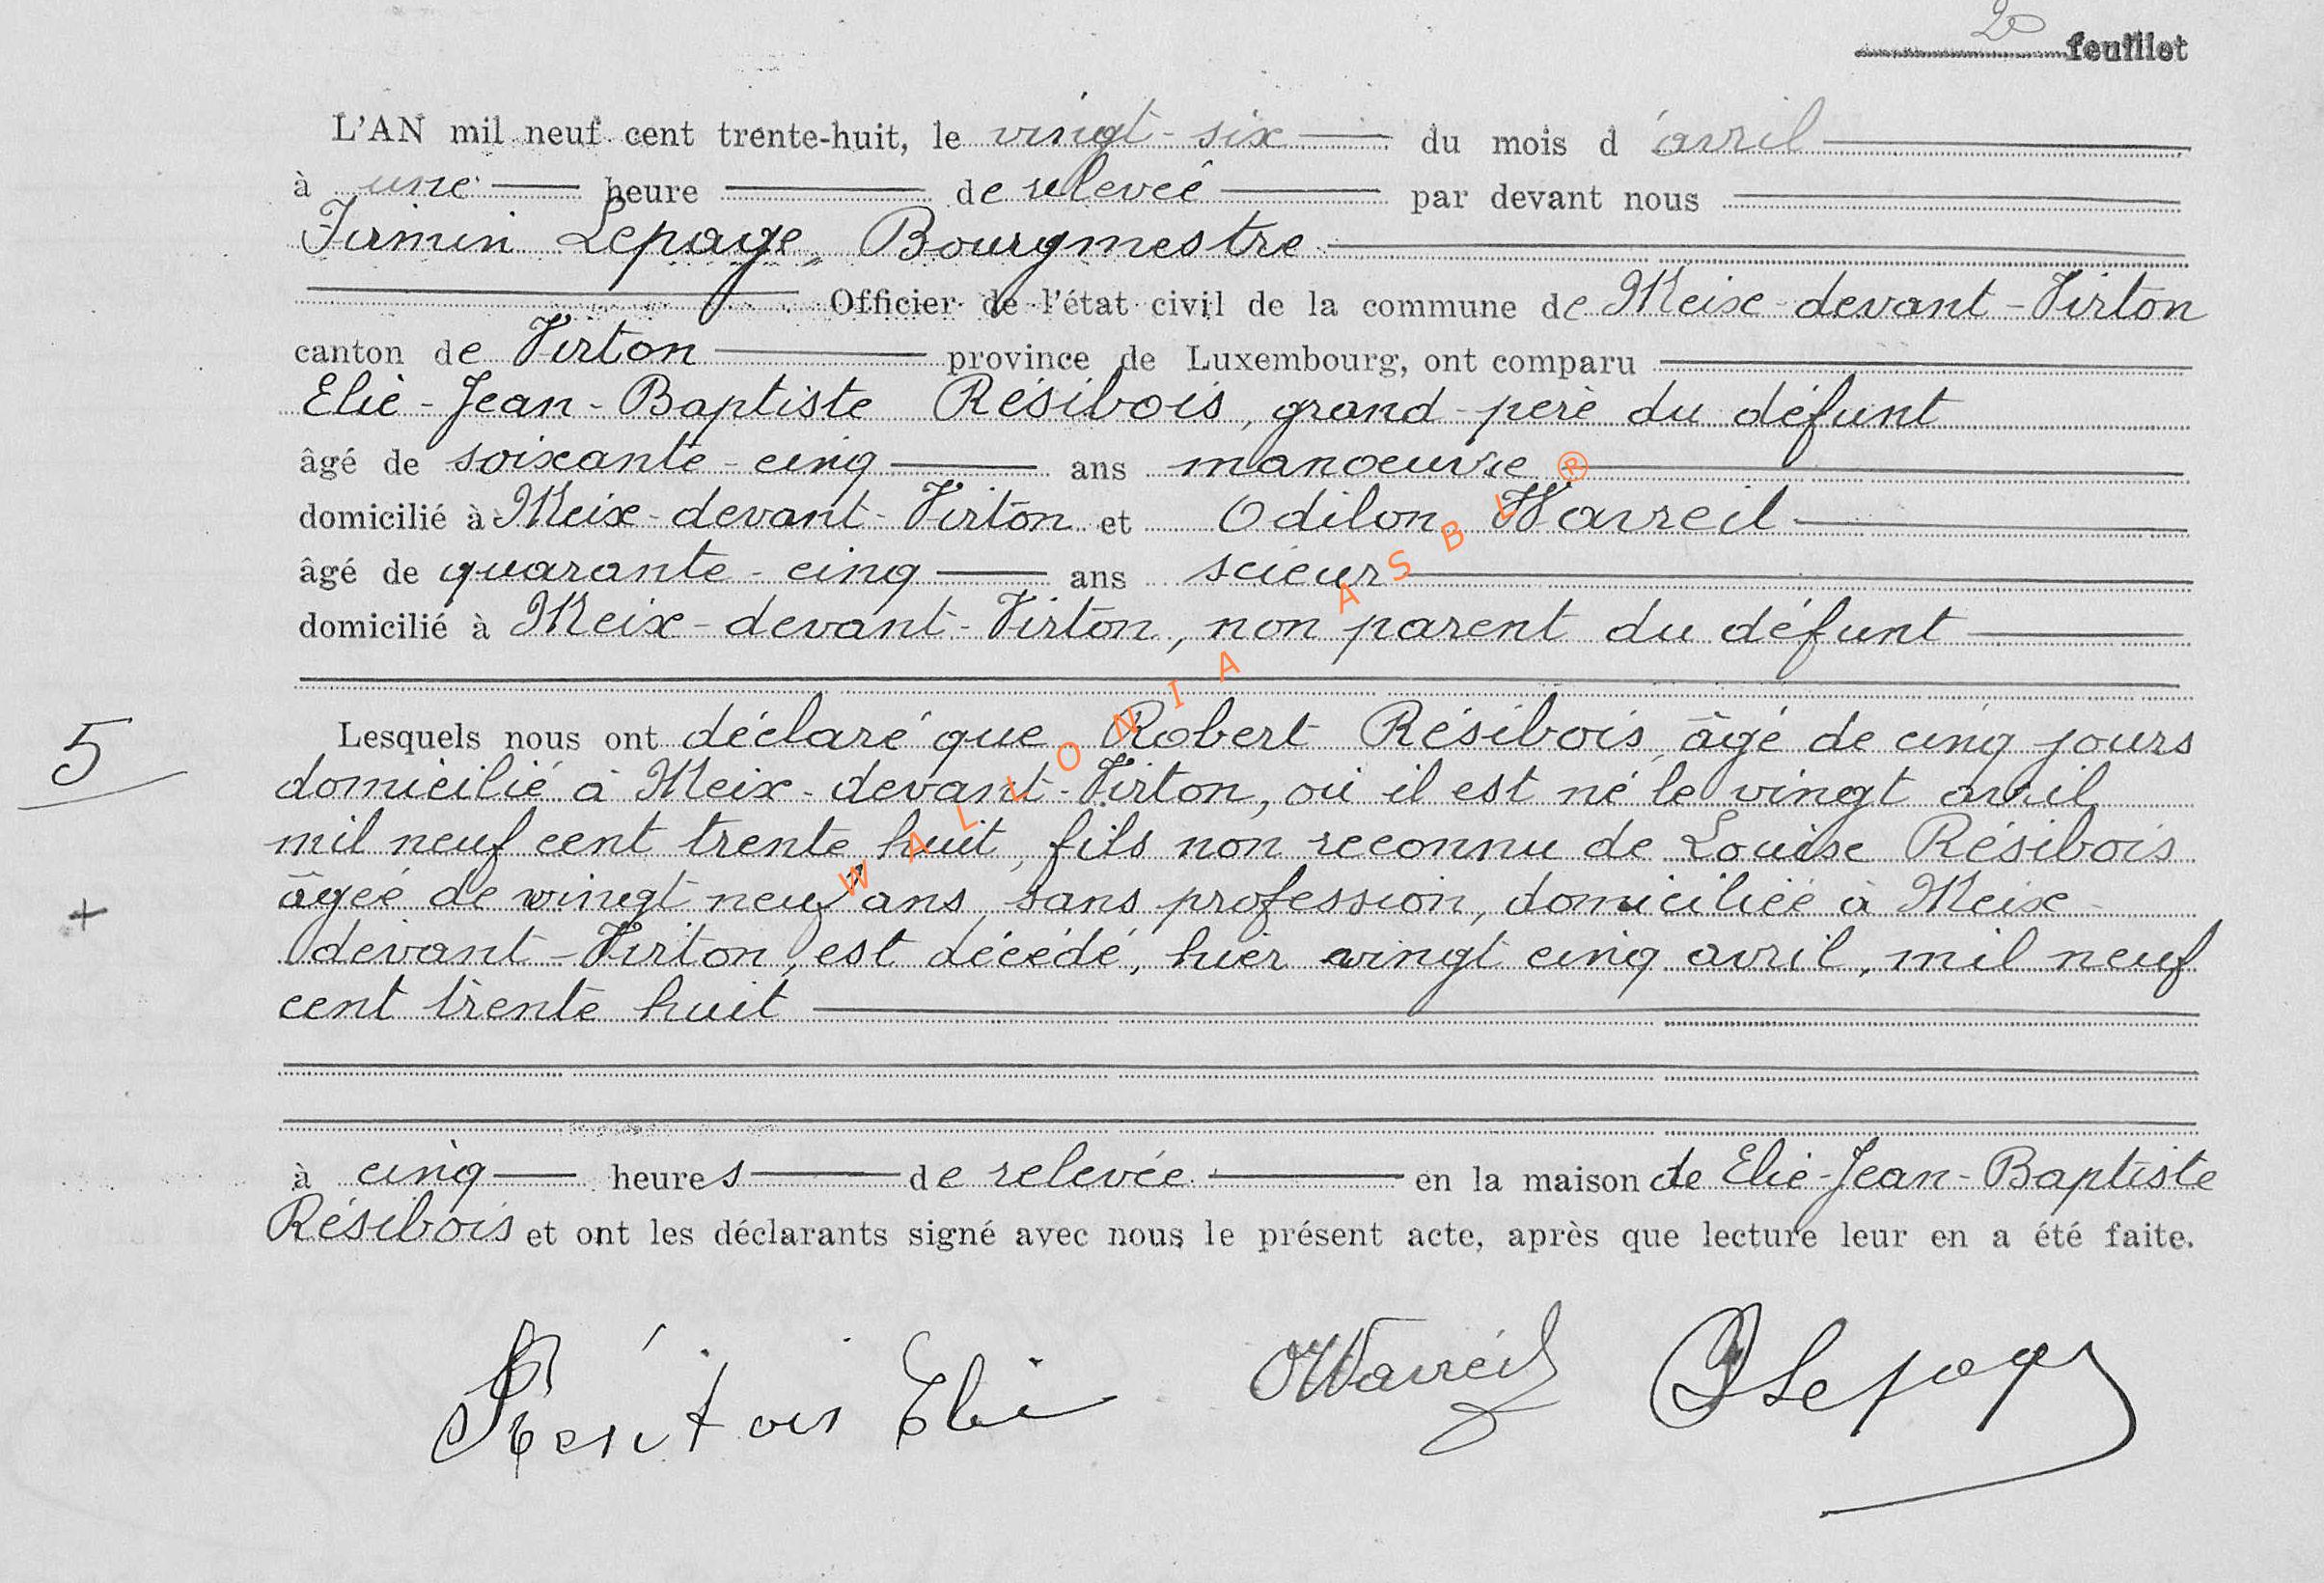 2e feuillet
L'AN mil neuf cent trente-huit, le vingt-six du mois d'avril
à une heure de relevée par devant nous
Firmin Lepage, Bourgmestre
Officier de l'état civil de la commune de Meix-devant-Virton
canton de Virton province de Luxembourg, ont comparu
Elie-Jean-Baptiste Résibois, grand-père du défunt
âgé de soixante-cinq ans manoeuvre
domicilié à Meix-devant-Virton et Odilon Wavreil
âgé de quarante-cinq ans scieur
domicilié à Meix-devant-Virton, non parent du défunt
5
Lesquels nous ont déclaré que Robert Résibois, âgé de cinq jours
domicilié à Meix-devant-Virton, où il est né le vingt avril
mil neuf cent trente huit, fils non reconnu de Louise Résibois
âgée de vingt neuf ans, sans profession, domiciliée à Meix-
+
devant-Virton, est décédé, hier vingt cinq avril, mil neuf
cent trente huit
à cinq heures de relevée en la maison de Elie-Jean-Baptiste
Résibois et ont les déclarants signé avec nous le présent acte, après que lecture leur en a été faite.
Résibois Elie OWavreil FLepage
WALLONIA ASBL®